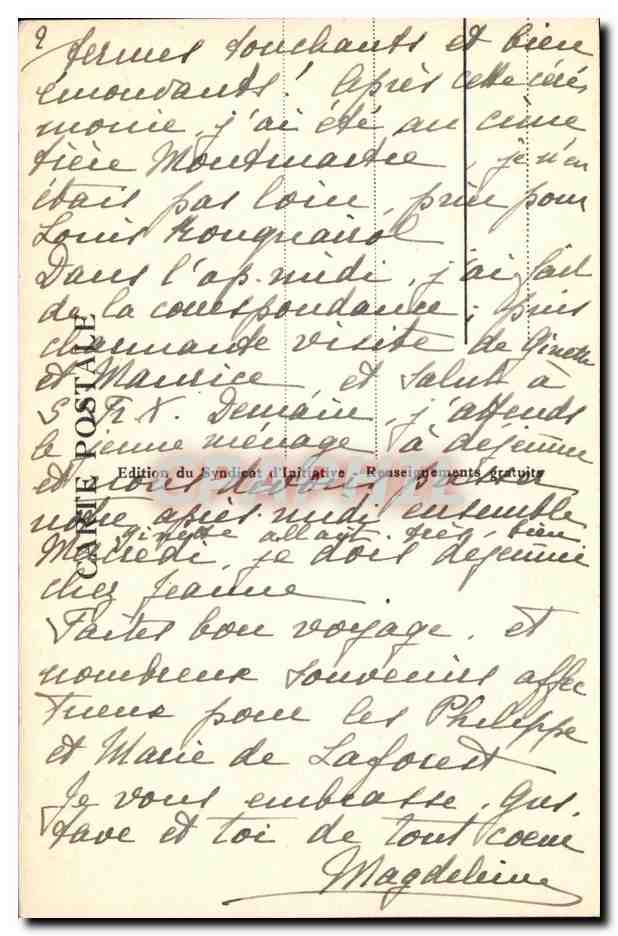 2
termes touchants et bien
émouvants! Après cette céré
monie, j'ai été au cime
tière Montmartre, je n'en
étais pas loin, prier pour
Louis
Dans l'ap. midi, j'ai fait
de la correspondance, puis
charmante visite de Ginette
et Maurice et salut à
S. Fr. X. Demain, j'attends
le jeune ménage à déjeuner
et nous devons passer
notre après midi ensemble
Ginette allait très bien
Mercredi, je dois déjeuner
chez Jeanne
Faites bon voyage. et
nombreux souvenirs affec
tueux pour les Philippe
et Marie de Laforest
Je vous embrasse, Gus.
tave et toi de tout coeur
Magdeleine
CARTE POSTALE
Edition du Syndicat d'Initiative - Renseignements gratuits